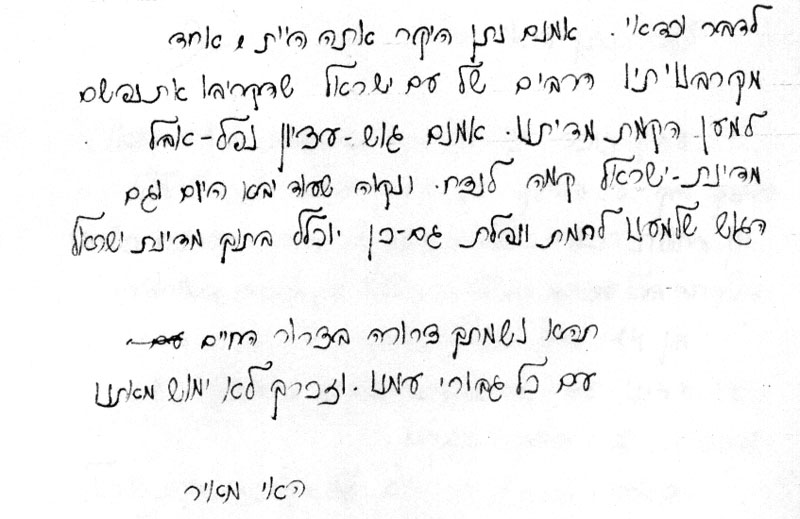 לדבר וכדאי. אמנם נתן היקר אתה היית, אחד
מקרבנותינו הרבים של עם ישראל שהקריבו את נפשם
למען הקמת מדינתנו. אמנם גוש-עציון נפל-אבל
מדינת-ישראל קמה לנצח. ונקוה שעוד יבוא היום וגם
הגוש שלמענו לחמת ונפלת גם-כן יוכלל בתוך מדינת ישראל
תהא נשמתך צרורה בצרור החיים
עם כל גבורי עמנו. וזכרך לא ימוש מאתנו
מאיר